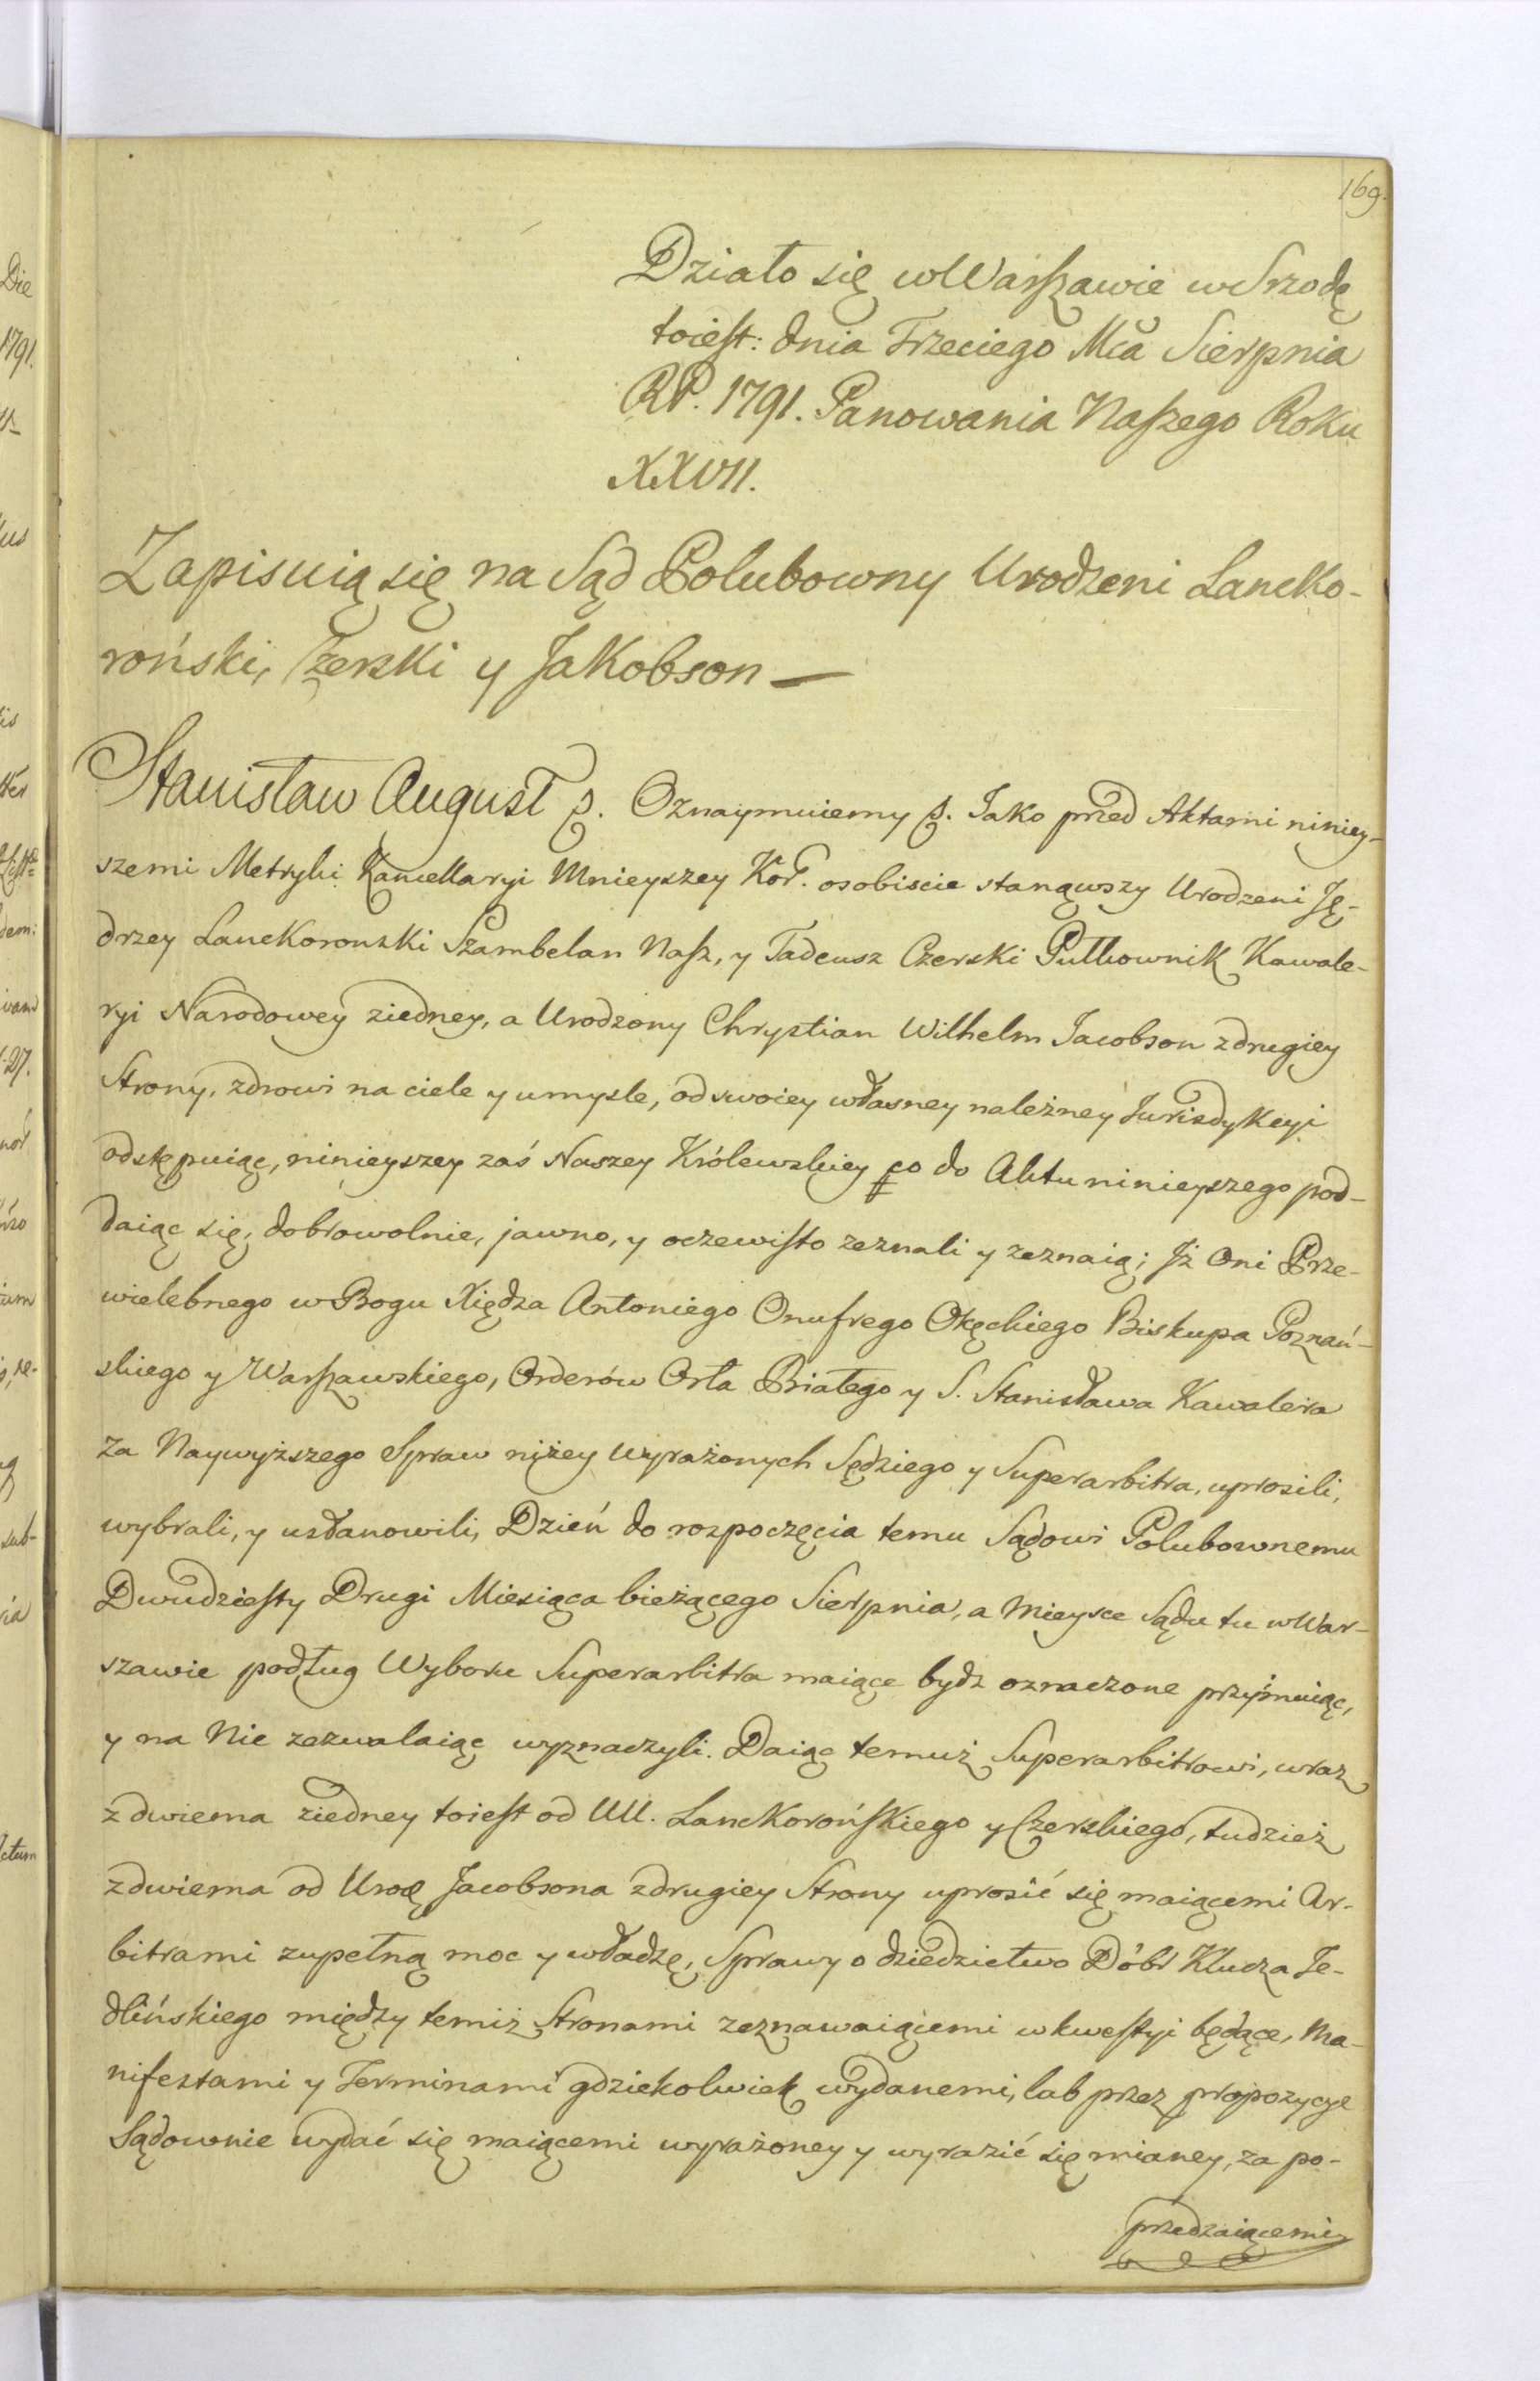 169.
Działo się w Warszawie w Srzodę
toiest: dnia Trzeciego Mca Sierpnia
RP. 1791. Panowania Naszego Roku
XXVII.
Zapisuią się na Sąd Polubowny Urodzeni Lancko-
roński, Czerski y Jakobson —
Stanisław August p. Oznaymuiemy p. Jako przed Aktami niniey-
szemi Metryki Kancellaryi Mnieyszey Kor. osobiscie stanąwszy Urodzeni Ję-
drzey Lanckoronski Szambelan Nasz, y Tadeusz Czerski Pułkownik Kawale-
ryi Narodowey ziedney, a Urodzony Chrystian Wilhelm Jacobson z drugiey
Strony, zdrowi na ciele y umysle, od swoiey własney należney Jurisdykcyi
odstępuiąc, ninieyszey zaś Naszey Królewskiey co do Aktu ninieyszego pod-
daiąc się, dobrowolnie, jawno, y oczewisto zeznali y zeznaią; Jż Oni Prze-
wielebnego w Bogu Xiędza Antoniego Onufrego Okęckiego Biskupa Poznań-
skiego y Warszawskiego, Orderów Orła Białego y S. Stanisława Kawalera
za Naywyższego Spraw niżey wyrażonych Sędziego y Superarbitra, uprosili,
wybrali, y ustanowili, Dzień do rozpoczęcia temu Sądowi Polubownemu
Dwudziesty Drugi Miesiąca bieżącego Sierpnia, a Mieysce Sądu tu w War-
szawie podług Wyboru Superarbitra maiące bydz oznaczone przyimuiąc,
y na Nie zezwalaiąc wyznaczyli. Daiąc temuż Superarbitrowi, wraz
z dwiema ziedney toiest od UU. Lanckorońskiego y Czerskiego, tudzież
z dwiema od Uroę Jacobsona z drugiey Strony uprosić się maiącemi Ar-
bitrami zupełną moc y władzę, Sprawy o dziedzictwo Dóbr Klucza Je-
dlińskiego między temiż Stronami zeznawaiącemi w kwestyi będące, Ma-
nifestami y Terminami gdziekolwiek wydanemi, lub przez propozycye
Sądownie wydać się maiącemi wyrażoney y wyrazić się mianey, za po-
przedzaiącemi
Die
1791.